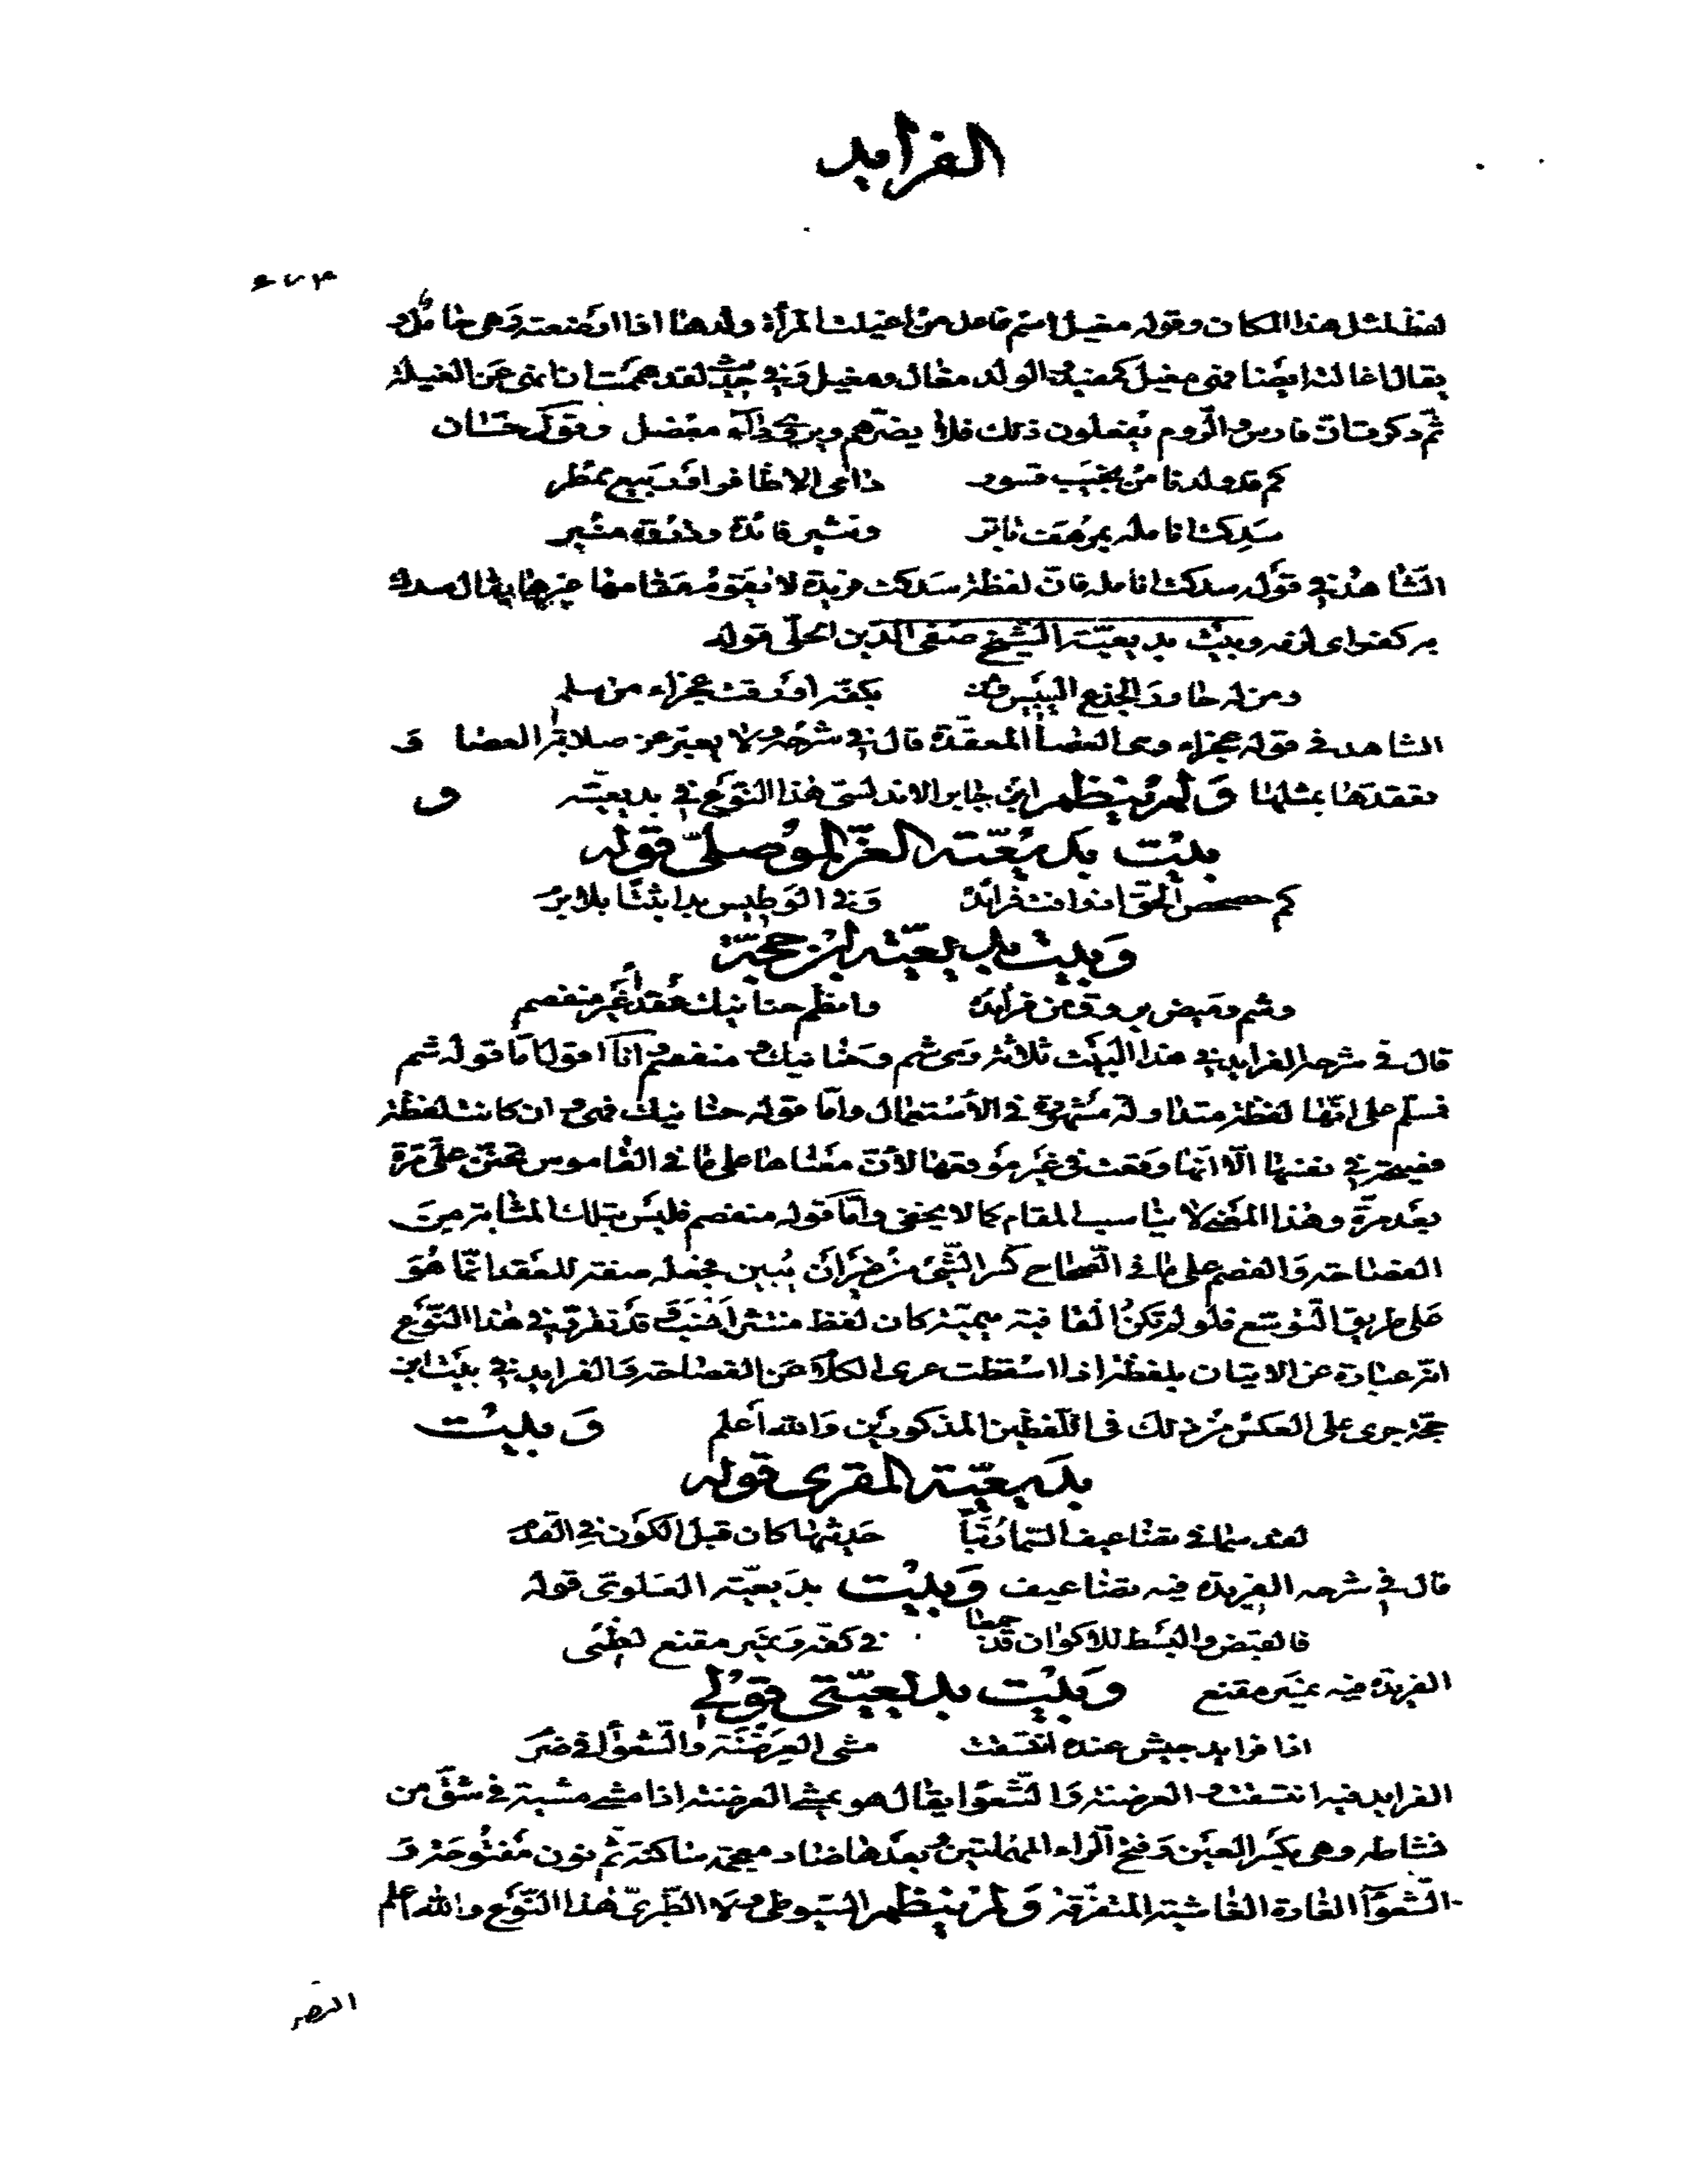 الفرايد
لفظ لمثل هذا المكان وقوله مغيل اسم فاعل من اغيلت المرأة ولدها اذا ارضعته وهى حامل و
يقال اغالت ايضا فهى مغيل كمغيلة والولد مغال ومغيل وفى حديث لقد هممت ان انهى عن الغيلة
ثم ذكرت ان فارس والروم يفعلون ذلك فلا يضرهم ويروى وداء معضل وقول حسان
كم قد ولدنا من نجيب قسور دامى الاظافر او ربيع ممطر
سدكت انامله بمرهف باتر وبنشر فائدة وذروة منبر
الشاهد فى قوله سدكت انامله فان لفظة سدكت فريدة لا يقوم مقامها غيرها يقال سدك
به كفرح اى لزمه وبيت بديعية الشيخ صفى الدين الحلى قوله
ومن له جاور الجذع اليبيس ومن بكفه اورقت عجراء من سلم
الشاهد فى قوله عجراء وهى العصا المعقدة قال فى شرحه ولا يعبر عن صلابة العصا و
تعقدها بمثلها ولم ينظم ابن جابر الاندلسى هذا النوع فى بديعيته و
بيت بديعية العز الموصلى قوله
كم حصحص الحق اذ وافت فرائده وفى الوطيس بدا ثبتا بلا برم
وبيت بديعية ابن حجة
وشم وميض بروق من فرائده وانظم حنانيك عقدا غير منفصم
قال فى شرحه الفرايد فى هذا البيت ثلاثة وهى شم وحنانيك ومنفصم انا اقول اما قوله شم
فسلم على انها لفظة متداولة مشهورة فى الاستعمال واما قوله حنانيك فهى وان كانت لفظة
فصيحة فى نفسها الا انها وقعت فى غير موقعها لان معناها على ما فى القاموس تحنن على مرة
بعد مرة وهذا المعنى لا يناسب المقام كما لا يخفى واما قوله منفصم فليس بتلك المثابة من
الفصاحة والفصم على ما فى الصحاح كسر الشئ من غير ان يبين فجعله صفة للعقد انما هو
على طريق التوسع فلو لم تكن القافية ميمية كان لفظ منتثر احسن وقد تقرر فى هذا النوع
انه عبارة عن الاتيان بلفظة اذا اسقطت عرى الكلام عن الفصاحة والفرايد فى بيت ابن
حجة جرى على العكس من ذلك فى اللفظين المذكورين والله اعلم وبيت
بديعية المقرى قوله
لقد سما فى تضاعيف السما رتبا حديثها كان قبل الكون فى القدم
قال فى شرحه الفريدة فيه تضاعيف وبيت بديعية العلوى قوله
فالقبض والبسط للاكوان قد جمعا فى كفه وبخير مقنع
الفريدة فيه بخير مقنع وبيت بديعيتى قولى
اذا فرايد جيش عنده اتسقت مشى العرضنة والشعوا فى ضرم
الفرايد فيه اتسقت والعرضنة والشعوا يقال هو يمشى العرضنة اذا مشى مشية فى شق من
نشاطه وهى بكسر العين وفتح الراء المهملتين وبعدها ضاد معجمة ساكنة ثم نون مفتوحة و
الشعوا الغارة الفاشية المتفرقة ولم ينظم السيوطى ولا الطبرى هذا النوع والله اعلم